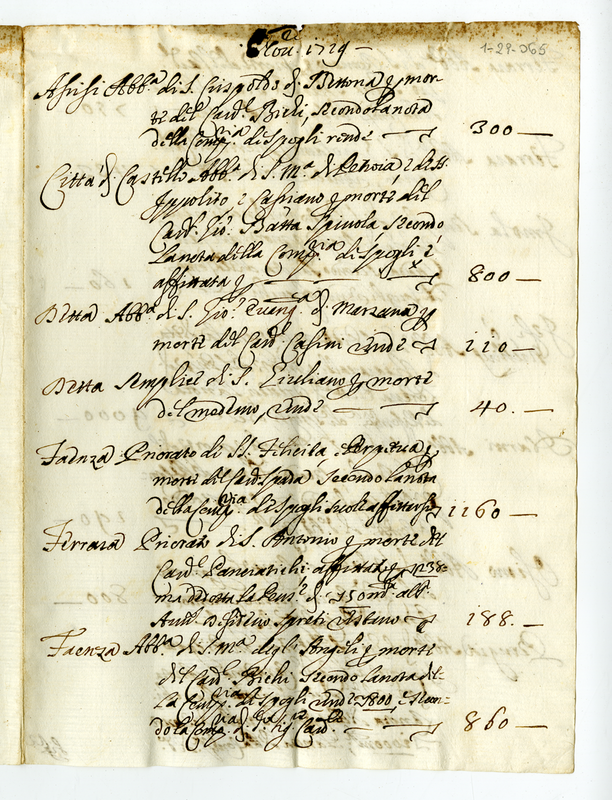 Nov. 1719 —
1-29-066
Assisi Abb.ª di S. Crispoldo di Bettona p mor-
te del Card.l Bichi secondo la nota
della Comp.ria di Spogli rende — 300 —
Citta di Castello Abb.ª di S. M.ª di Petroia e di SS.
Ippolito e Cassiano p morte del
Card. Gio. Batta Spinola secondo
la nota della Comp.ria di Spogli è
affittata p — 800 —
Detta Abb.ª di S. Gio. Evang.ª di Marzana p
morte del Card. Casini rende 110 —
Detta Semplice di S. Giuliano p morte
del medemo, rende — 40. —
Faenza Priorato di SS. Felicita, e Perpetua p
morte del Card. Spada secondo la nota
della Comp.ria di Spogli suole affittarsi 1160 —
Ferrara Priorato di S. Antonio p morte del
Card.l Panciatichi affittata p 238-
ma dedotta la Pens.e di 50 m.ta all'
Desiderio Spreti restano 188. —
Faenza Abb.ª di S. M.ª degli Angeli p morte
del Card. Bichi secondo la nota del-
la Comp.ria di Spogli rende 1800, e secon-
do la Comp.ria di Card.le — 860 —